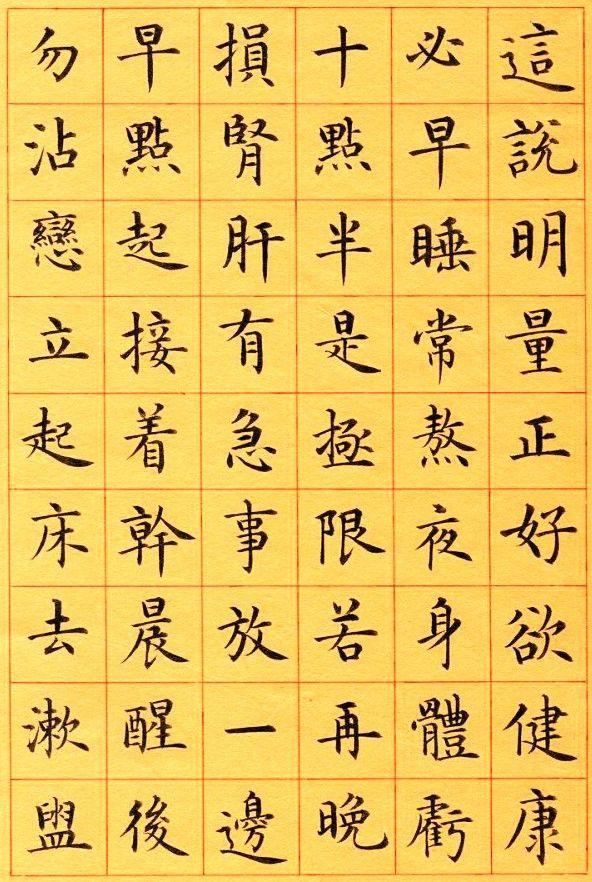 這說明量正好欲健康
必早睡常熬夜身體虧
十點半是極限若再晚
損腎肝有急事放一邊
早點起接着幹晨醒後
勿沾戀立起床去漱盥